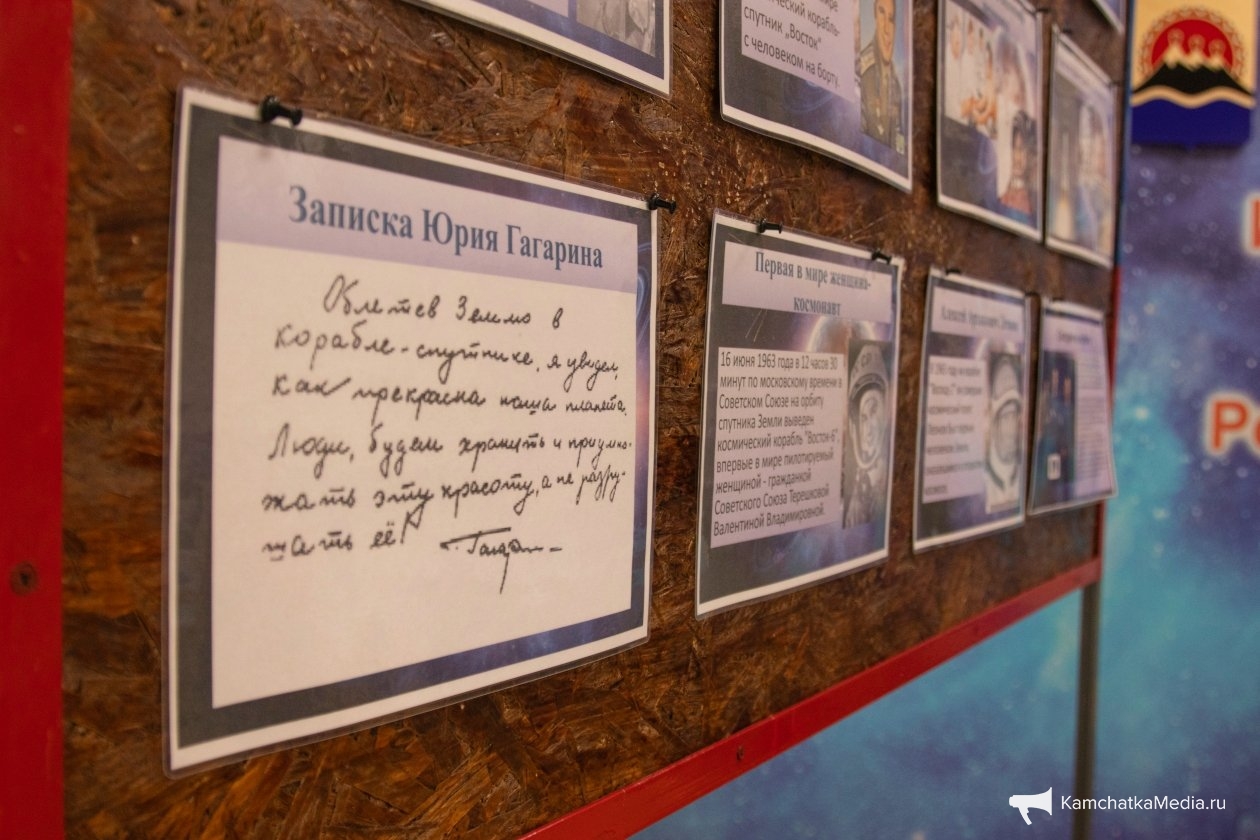 Записка Юрия Гагарина
Облетев Землю в
корабле-спутнике, я увидел,
как прекрасна наша планета.
Люди, будем хранить и приумно-
жать эту красоту, а не разру-
шать её!
Гагарин
спутник „Восток"
с человеком на борту.
Первая в мире женщина-
космонавт
16 июня 1963 года в 12 часов 30
минут по московскому времени в
Советском Союзе на орбиту
спутника Земли выведен
космический корабль "Восток-6"
впервые в мире пилотируемый
женщиной - гражданкой
Советского Союза Терешковой
Валентиной Владимировной.
KamchatkaMedia.ru